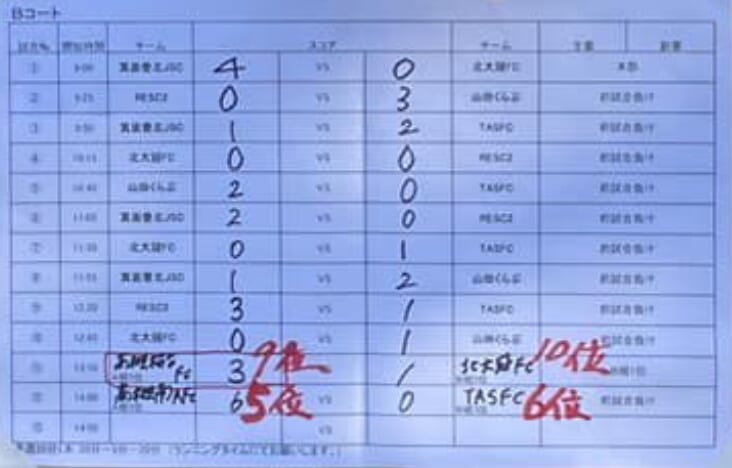 Bコート
試合No 開始時間 チーム スコア チーム 主審 副審
① 9:00 箕面豊北JSC 4 VS 0 北大阪FC 本部
② 9:25 RESC2 0 VS 3 山田くらぶ 前試合負け
③ 9:50 箕面豊北JSC 1 VS 2 TASFC 前試合負け
④ 10:15 北大阪FC 0 VS 0 RESC2 前試合負け
⑤ 10:40 山田くらぶ 2 VS 0 TASFC 前試合負け
⑥ 11:05 箕面豊北JSC 2 VS 0 RESC2 前試合負け
⑦ 11:30 北大阪FC 0 VS 1 TASFC 前試合負け
⑧ 11:55 箕面豊北JSC 1 VS 2 山田くらぶ 前試合負け
⑨ 12:20 RESC2 3 VS 1 TASFC 前試合負け
⑩ 12:45 北大阪FC 0 VS 1 山田くらぶ 前試合負け
⑪ 13:10 FC 3 9位 1 北大阪FC 10位
⑫ 14:00 FC 6 5位 0 TASFC 6位 前試合負け
⑬ 14:50 VS
(ランニングタイムにてお願いします。)